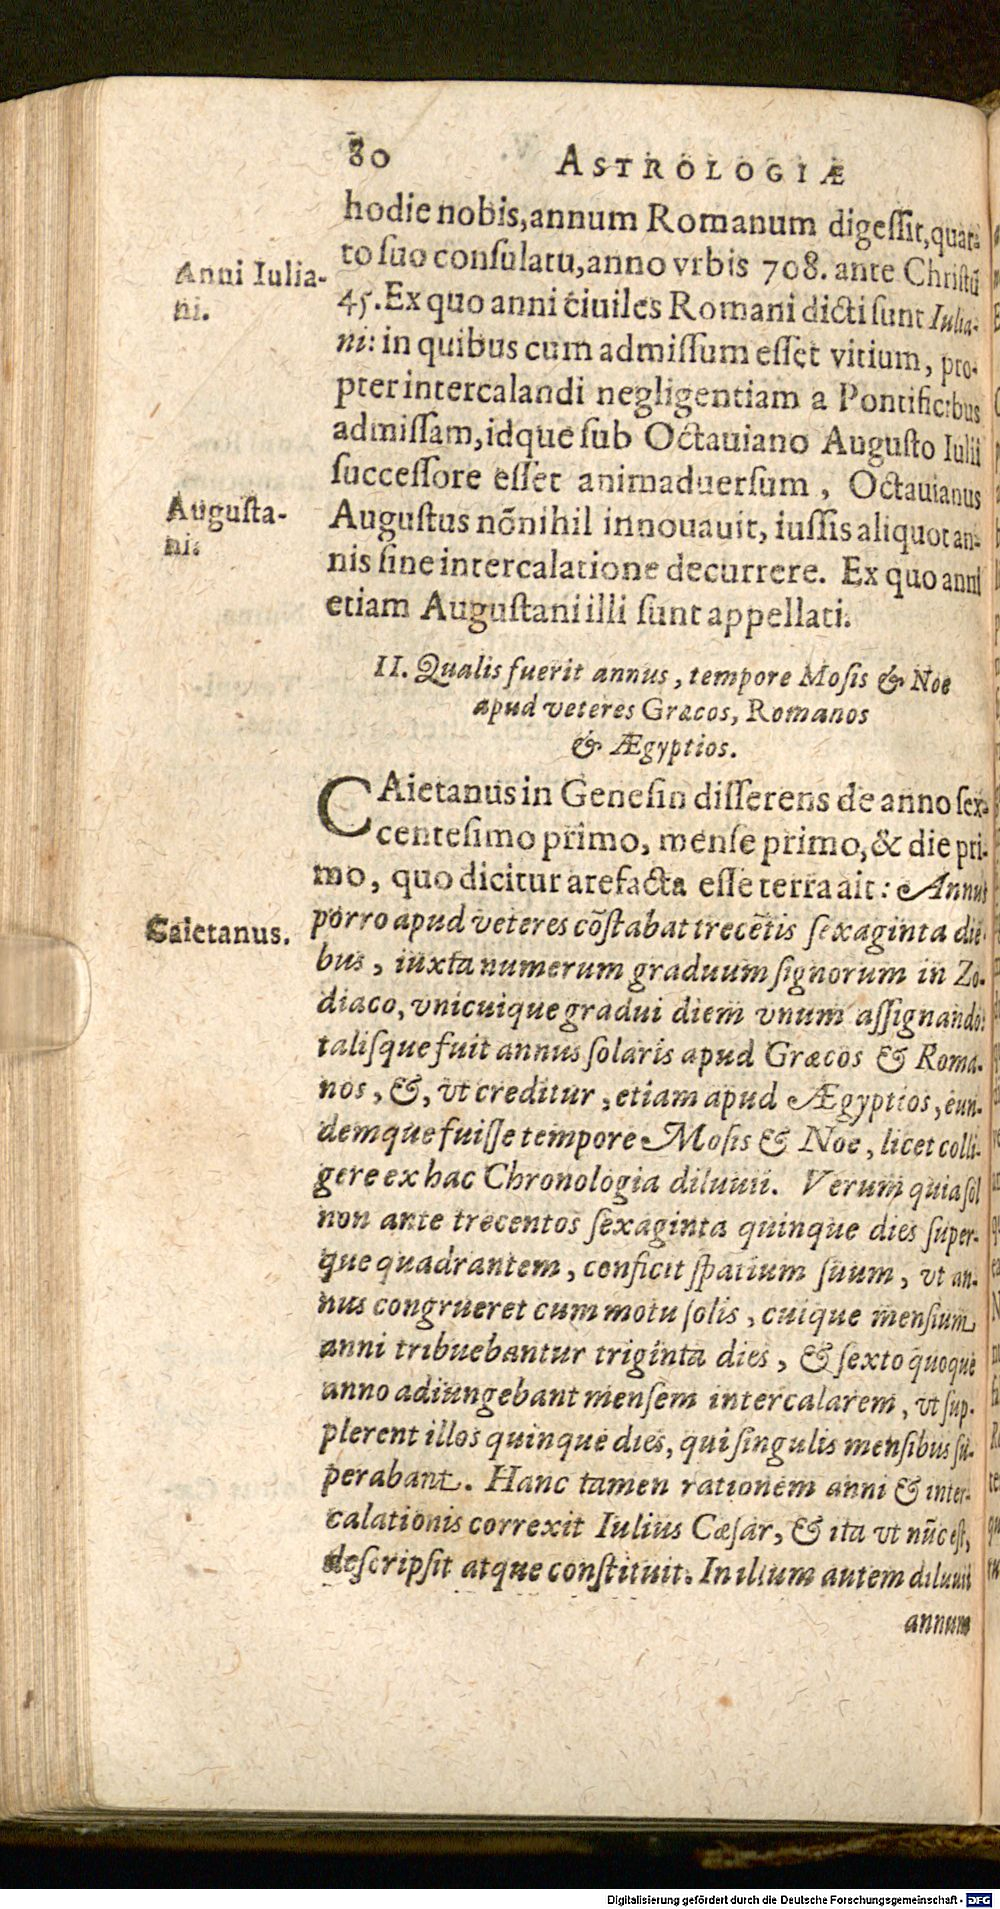 80 ASTROLOGIÆ
hodie nobis, annum Romanum digeſſit, quar-
to ſuo conſulatu, anno vrbis 708. ante Chriſtū
Anni Iulia-
ni.
45. Ex quo anni ciuiles Romani dicti ſunt Iulia-
ni: in quibus cum admiſſum eſſet vitium, pro-
pter intercalandi negligentiam a Pontificibus
admiſſam, idque ſub Octauiano Auguſto Iulii
ſucceſſore eſſet animaduerſum, Octauianus
Auguſta-
ni.
Auguſtus nõnihil innouauit, iuſſis aliquot an-
nis ſine intercalatione decurrere. Ex quo anni
etiam Auguſtani illi ſunt appellati.
II. Qualis fuerit annus, tempore Moſis & Noe
apud veteres Græcos, Romanos
& Ægyptios.
CAietanus in Geneſin diſſerens de anno ſex-
centeſimo primo, menſe primo, & die pri-
mo, quo dicitur arefacta eſſe terra ait: Annus
Caietanus.
porro apud veteres cõſtabat trecẽtis ſexaginta die-
bus, iuxta numerum graduum ſignorum in Zo-
diaco, vnicuique gradui diem vnum aſſignando:
taliſque fuit annus ſolaris apud Græcos & Roma-
nos, &, vt creditur, etiam apud Ægyptios, eun-
demque fuiſſe tempore Moſis & Noe, licet colli-
gere ex hac Chronologia diluuii. Verum quia ſol
non ante trecentos ſexaginta quinque dies ſuper-
que quadrantem, conficit ſpatium ſuum, vt an-
nus congrueret cum motu ſolis, cuique menſium
anni tribuebantur triginta dies, & ſexto quoque
anno adiungebant menſem intercalarem, vt ſup-
plerent illos quinque dies, qui ſingulis menſibus ſu-
perabant. Hanc tamen rationem anni & inter-
calationis correxit Iulius Cæſar, & ita vt nūc eſt,
deſcripſit atque conſtituit. In illum autem diluuii
annum
Digitalisierung gefördert durch die Deutsche Forschungsgemeinschaft - DFG